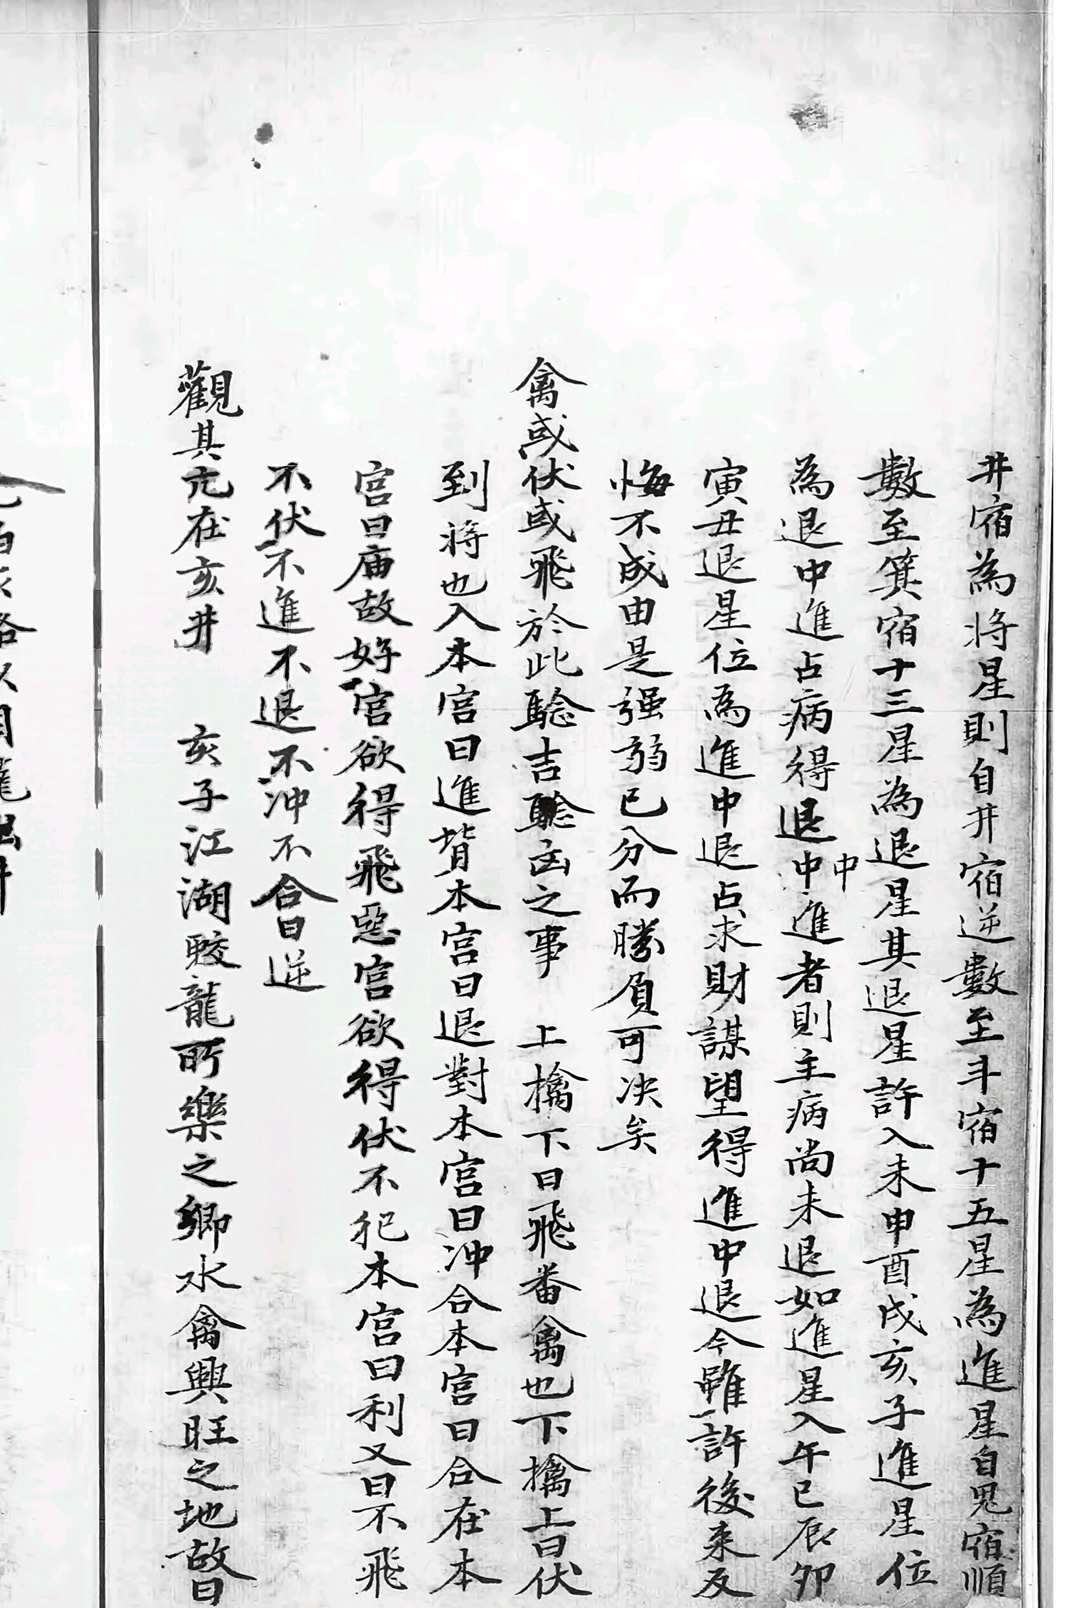 井宿為将星則自井宿逆數至斗宿十五星為進星自鬼宿順
數至箕宿十三星為退星其退星許入未申酉戌亥子進星位
為退中進占病得退中進者則主病尚未退如進星入午巳辰卯
中
寅丑退星位為進中退占求財謀望得進中退今雖許後来反
悔不成由是强弱已分而勝負可决矣
禽或伏或飛於此騐吉騐凶之事 上擒下曰飛番禽也下擒上曰伏
到将也入本宫曰進背本宫曰退對本宫曰冲合本宫曰合在本
宫曰庙故好官欲得飛惡官欲得伏不犯本宫曰利又曰不飛
不伏不進不退不冲不合曰逆
觀其亢在亥井 亥子江湖蛟龍所樂之鄉水禽興旺之地故曰